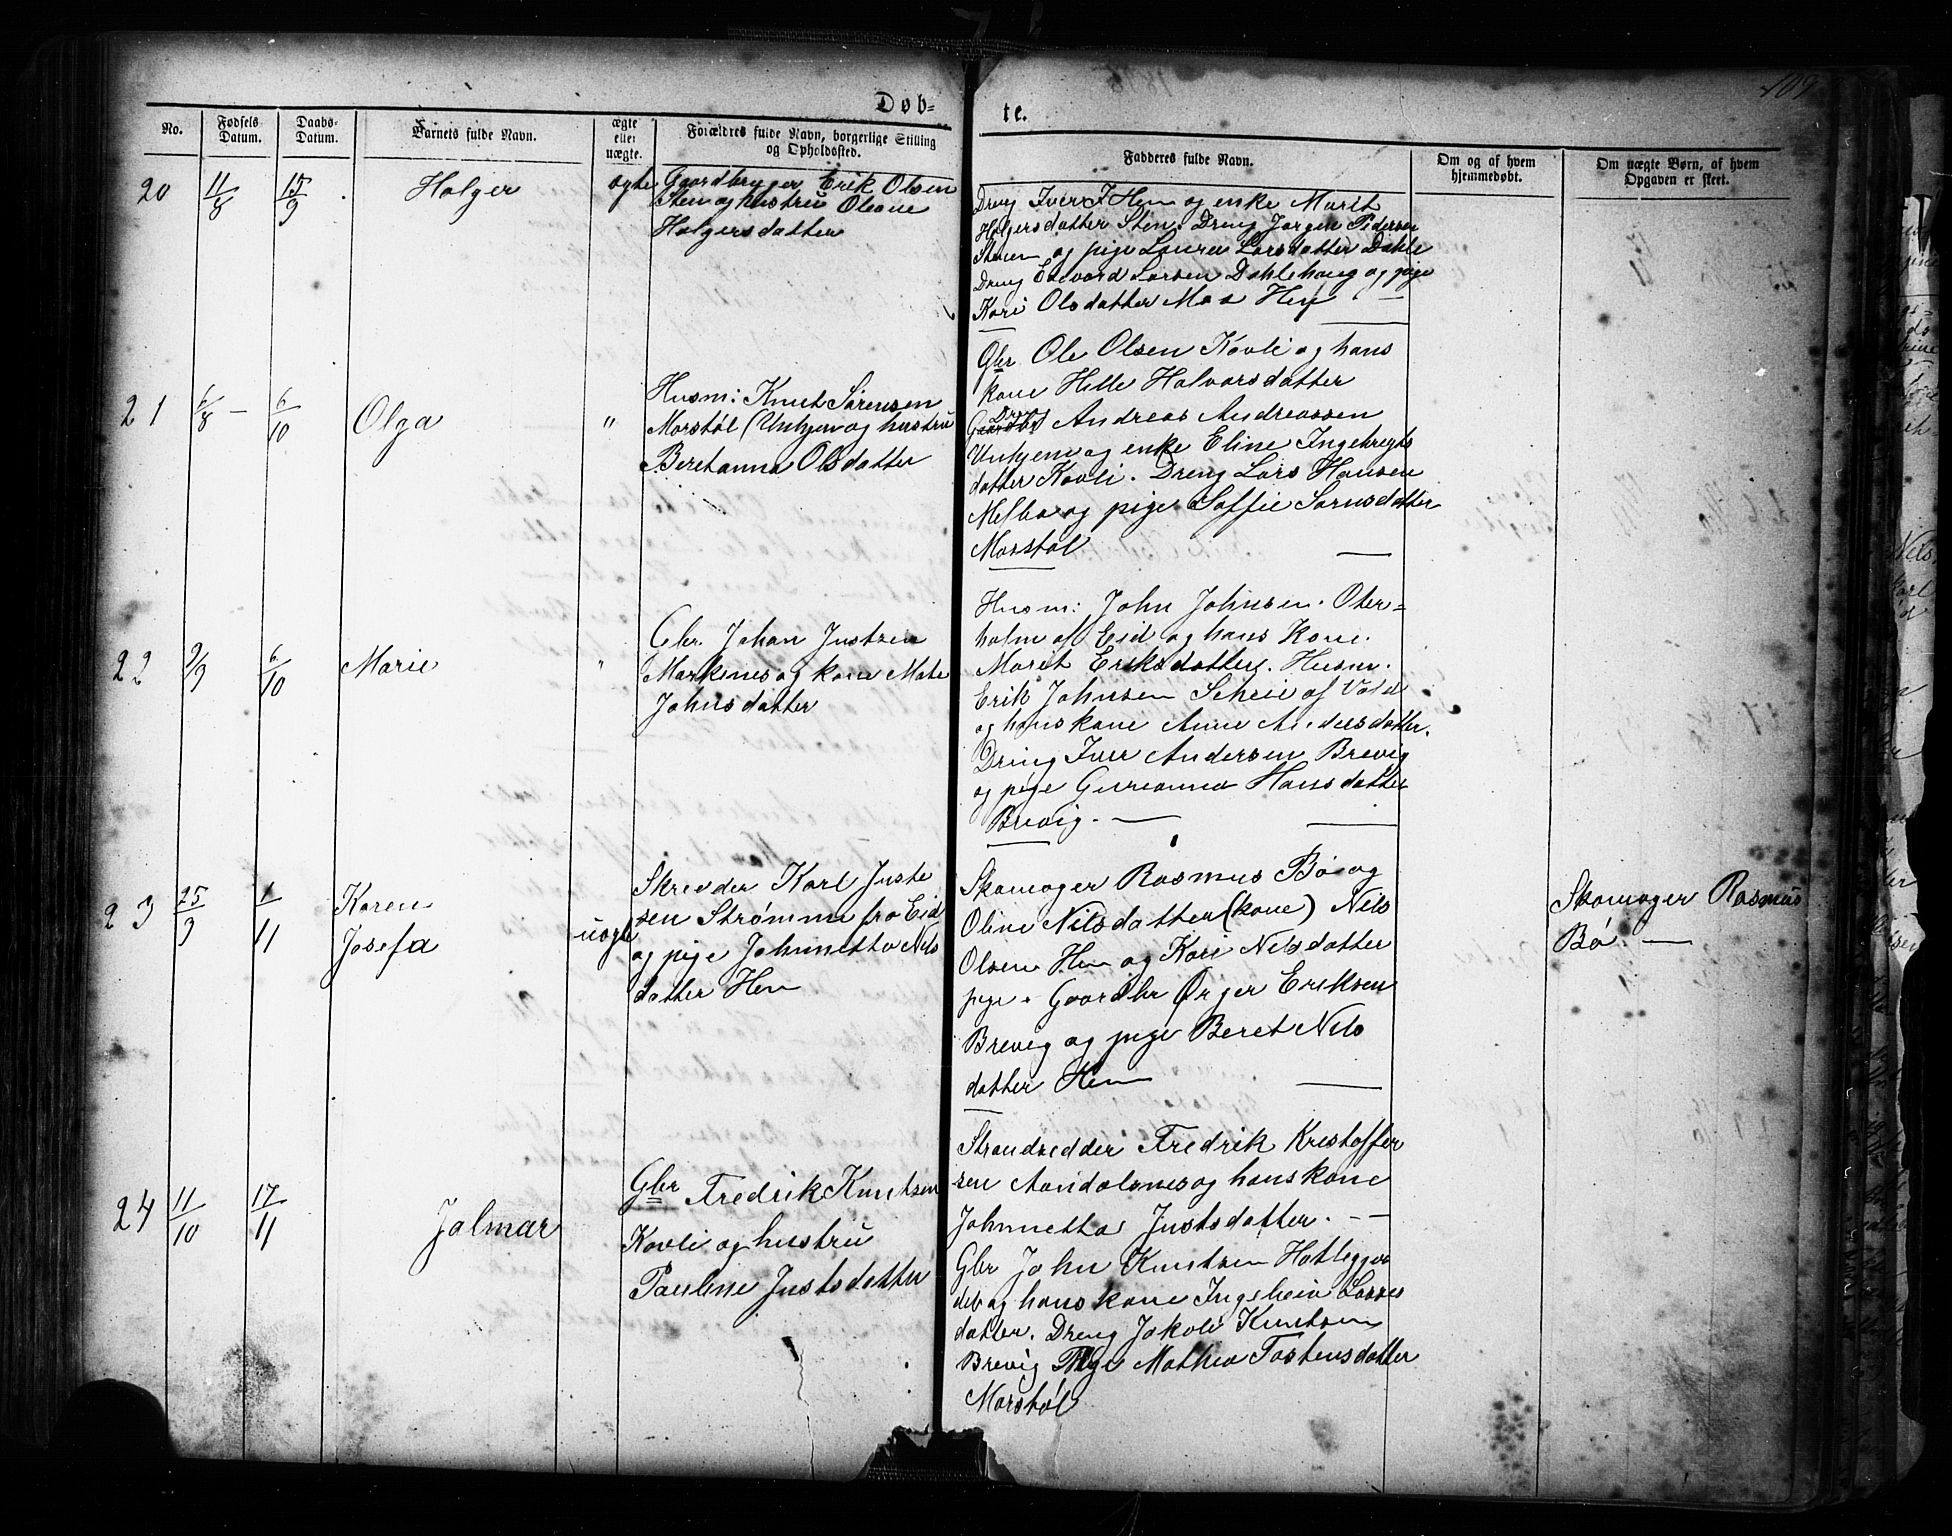 109
Døb=
te.
No.
Fødsels Datum.
Daabs- Datum.
Barnets fulde Navn.
ægte eller uægte.
Forældres fulde Navn, borgerlige Stilling og Opholdssted.
Fadderes fulde Navn.
Om og af hvem hjemmedøbt.
Om uægte Børn, af hvem Opgaven er skeet.
20
11/8
15/9
Holger
ægte
Gaardbruger Erik Olsen
Sten og hustru Oleane
Holgersdatter
Dreng Iver I Hen og enke Marit
Holgersdatter Sten. Dreng Jørgen Pedersen
og pige Laura Larsdatter Dahle
Dreng Edevard Larsen Dahlehaug og pige
Kari Olsdatter Moa Hen —
21
6/8 —
6/10
Olga
"
Husm: Knut Sørensen
Morstøl (Unhjem og hustru
Beret anna Olsdatter
Gbr Ole Olsen Kavli og hans
kone Helle Halvorsdatter
Dreng
Andreas Andreassen
Unhjem og enke Eline Ingebregts
datter Kavli. Dreng Lars Hansen
Melbø og pige Soffie Sørnsdatter
Morstøl —
22
9/9
6/10
Marie
"
Gbr. Johan Justsen
Markenes og kone Mate
Johnsdatter
Husm: John Johnsen. Oter=
holm af Eid og hans Kone.
Maret Eriksdatter. Husm.
Erik Johnsen Scheie af Vold
og hans kone Anne Andersdatter.
Dreng Iver Andersen Brevig
og pige Gurianna Hansdatter
Brevig. —
23
25/9
1/11
Karen
Josefa
uægte
Skredder Karl Juste
sen Strømme fra Eid
og pige Johnnetta Nils
datter Hen
Skomager Rasmus Bø og
Oline Nilsdatter (kone) Nils
Olsen Hen og Kari Nilsdatter
pige. Gaardbr Ørjer Eriksen
Brevig og pige Beret Nils
datter Hen —
Skomager Rasmus
Bø —
24
11/10
17/11
Jalmar
Gbr Fredrik Knutsen
Kavli og hustru
Pauline Justsdatter
Strandsedder Fredrik Kristoffer
sen Aandalsnes og hans kone
Johnnetta Justsdatter. —
Gbr John Knutsen Hatlegger
det og hans kone Ingebeia Lasses
datter. Dreng Jakob Knutsen
Brevig Pige Mathea Tostensdatter
Morstøl